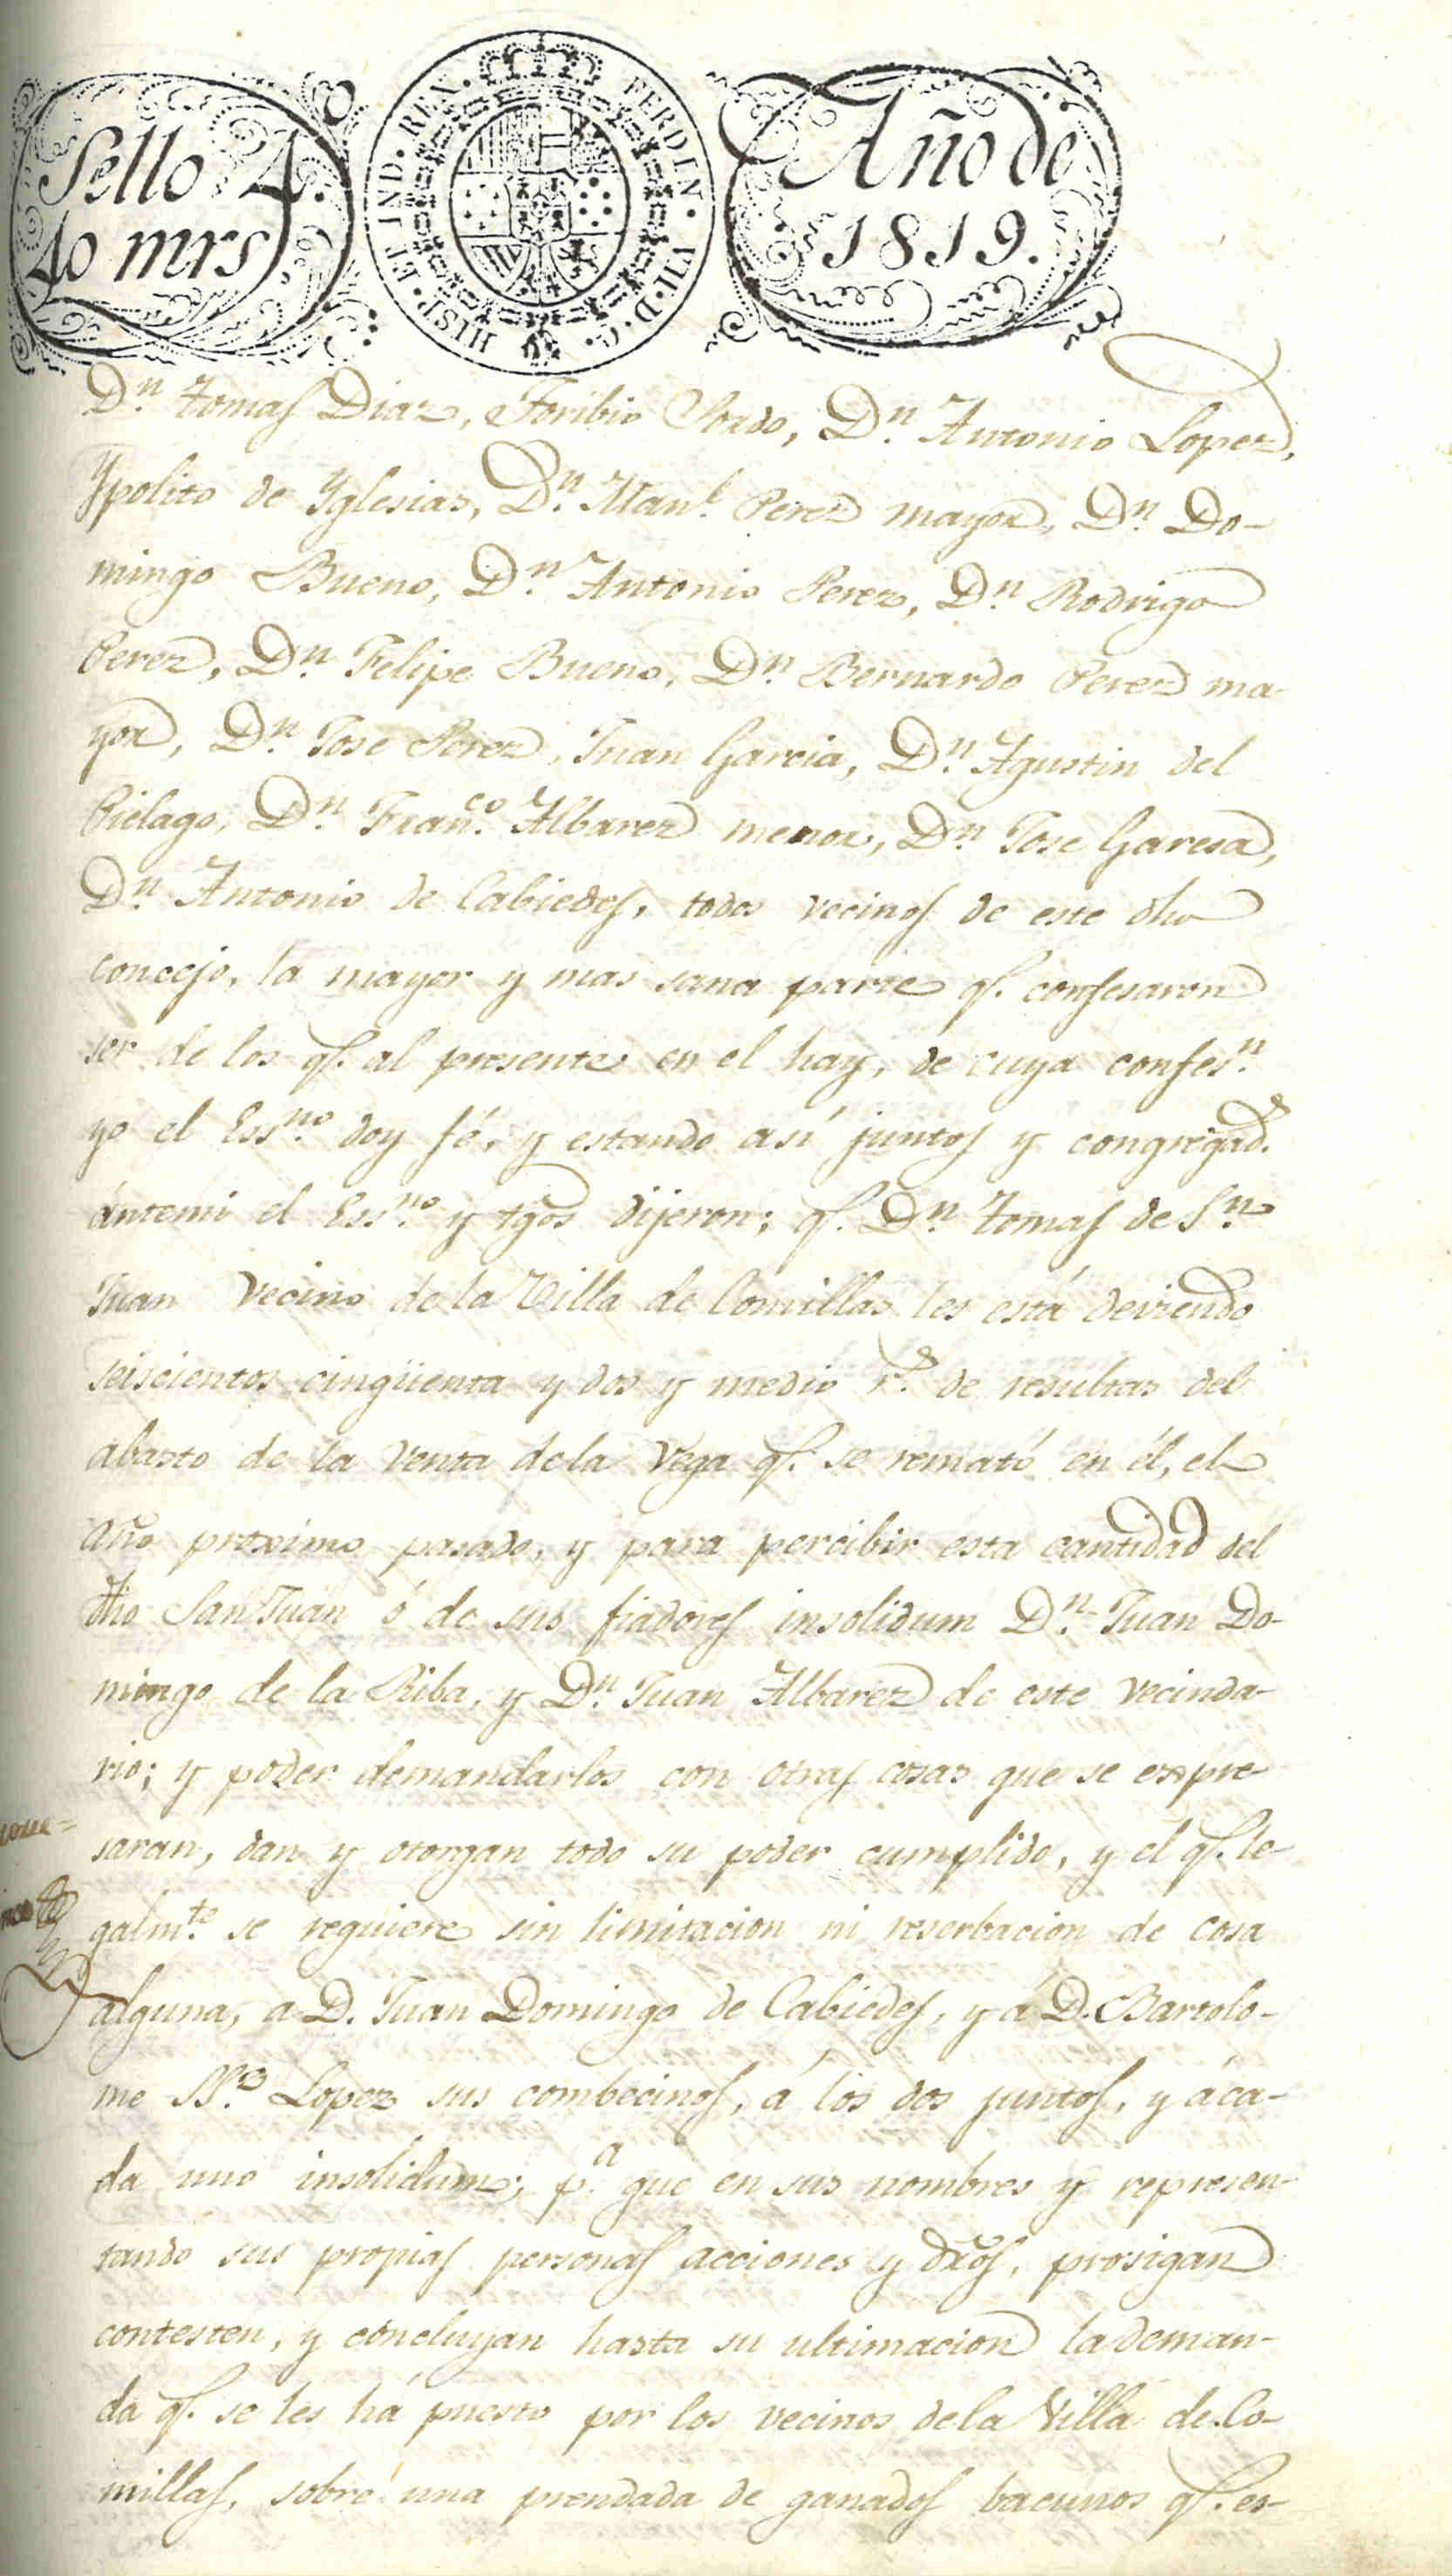 Sello 4.
40 mrs.
HISP. ET IND. REX. FERDIN. VII. D. G.
Año de
1819.
Dn. Tomas Diaz, Toribio Pordo, Dn. Antonio Lopez,
Ypolito de Yglesias, Dn. Manl. Perez mayor, Dn. Do-
mingo Bueno, Dn. Antonio Perez, Dn. Rodrigo
Perez, Dn. Felipe Bueno, Dn. Bernardo Perez ma-
yor, Dn. Jose Perez, Juan Garcia, Dn. Agustin del
Pielago, Dn. Franco. Albarez menor, Dn. Jose Garcia,
Dn. Antonio de Cabiedes, todos vecinos de este dho
concejo, la mayor y mas sana parte q. confesaron
ser de los q. al presente en el hay, de cuya confesn.
yo el Essno. doy fé, y estando así juntos y congregads.
ántemi el Essno. y tgos dijeron; q. Dn. Tomas de Sn.
Juan Vecino de la Villa de Comillas les está deviendo
seiscientos cinqüenta y dos y medio rs. de resultas del
abasto de la Venta de la Vega q. se remató en él, el
año proximo pasado, y para percibir esta cantidad del
dho San Juan ó de sus fiadores insolidum Dn. Juan Do-
mingo de la Riba, y Dn. Juan Albarez de este vecinda-
rio; y poder demandarlos con otras cosas que se expre
saran, dan y otorgan todo su poder cumplido, y el q. le-
galmte. se requiere sin limitacion ni reserbacion de cosa
alguna, a D. Juan Domingo de Cabiedes, y á D. Bartolo-
me Lopez sus combecinos, á los dos juntos, y á ca-
da uno insolidum; pa. que en sus nombres y represen-
tando sus propias personas acciones y dros, prosigan
contesten, y concluyan hasta su ultimacion la deman-
da q. se les há puesto por los vecinos de la Villa de Co-
millas, sobre una prendada de ganados bacunos q. es-